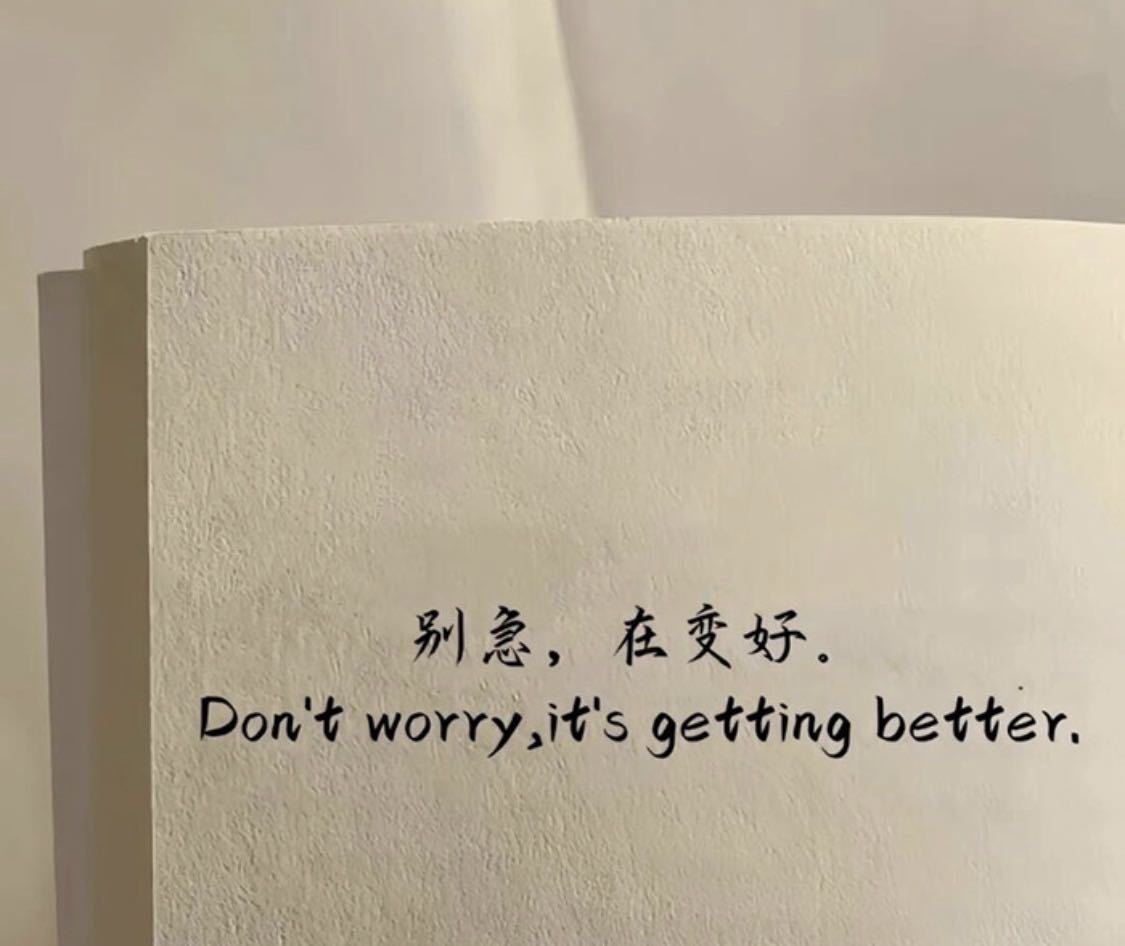 别急，在变好。
Don't worry,it's getting better.